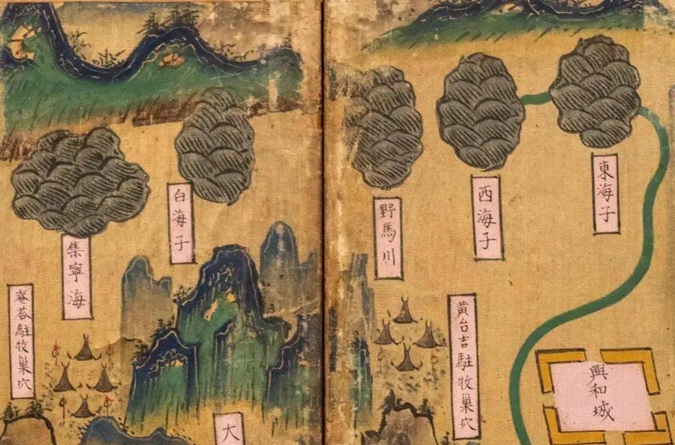 東海子
西海子
野馬川
興和城
黄台吉駐牧巢穴
白海子
集寧海
荅駐牧巢穴
大